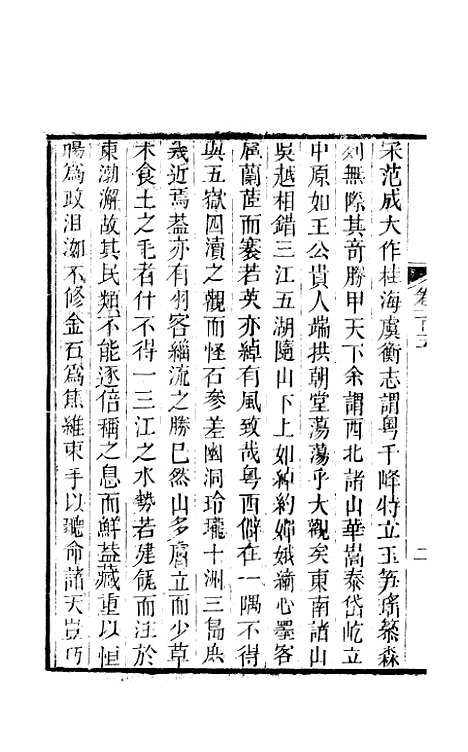 宋范成大作桂海虞衡志謂粵千峰特立玉筍瑤篸森
列無際其奇勝甲天下余謂西北諸山華嵩泰岱屹立
中原如王公貴人端拱朝堂蕩蕩乎大觀矣東南諸山
吳越相錯三江五湖隨山下上如綽約娣娥衞心騷客
扈蘭茝而褰若英亦綽有風致哉粵西僻在一隅不得
與五嶽四瀆之觀而怪石參差幽洞玲瓏十洲三島庶
幾近焉葢亦有羽客緇流之勝已然山多膚立而少草
木食土之毛者什不得一三江之水勢若建瓴而注於
東渤澥故其民類不能逐倍稱之息而鮮葢藏重以恒
暘爲政沮洳不修金石爲焦維束手以聽命諸天豈巧
卷一百五
二